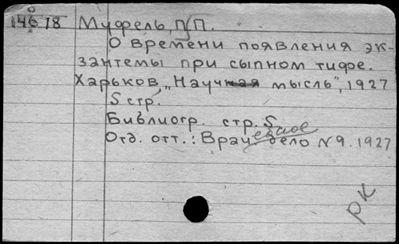 14678 Муфель, П.П.
О времени появления эк-
зантемы при сыпном тифе.
Харьков, "Научная мысль", 1927
5 стр.
Библиогр. стр. 5
Отд. отт.: Врачебное дело N9. 1927
РК